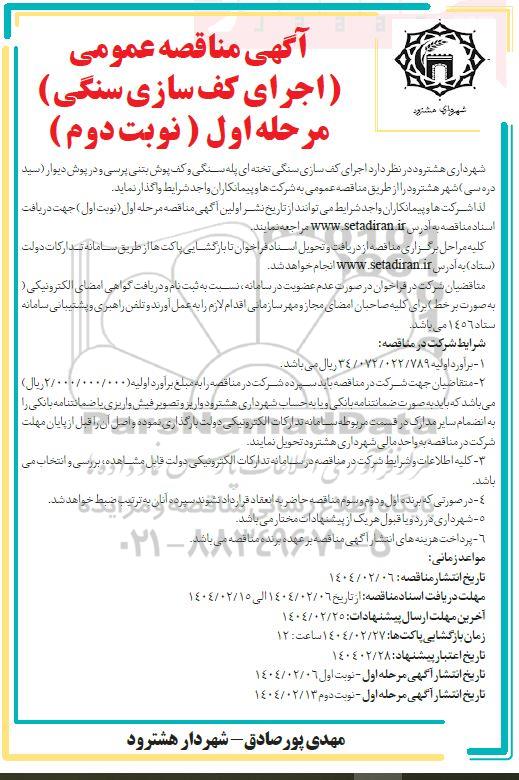 آگهی مناقصه عمومی
(اجرای کف سازی سنگی)
مرحله اول ( نوبت دوم )
شهرداری هشترود
شهرداری هشترود در نظر دارد اجرای کف سازی سنگی تخته ای پله سنگی و کف پوش بتنی پرسی و در پوش دیوار (سید
دره سی) شهر هشترود را از طریق مناقصه عمومی به شرکت ها و پیمانکاران واجد شرایط واگذار نماید.
لذا شرکت ها و پیمانکاران واجد شرایط می توانند از تاریخ نشر اولین آگهی مناقصه مرحله اول (نوبت اول) جهت دریافت
اسناد مناقصه به آدرس www.setadiran.ir مراجعه نمایند.
کلیه مراحل برگزاری مناقصه از دریافت و تحویل اسناد فراخوان تا بازگشایی پاکت ها از طریق سامانه تدارکات دولت
(ستاد) به آدرس www.setadiran.ir انجام خواهد شد.
متقاضیان شرکت در فراخوان در صورت عدم عضویت در سامانه ، نسبت به ثبت نام و دریافت گواهی امضای الکترونیکی (
به صورت بر خط) برای کلیه صاحبان امضای مجاز و مهر سازمانی اقدام لازم را به عمل آورند و تلفن راهبری و پشتیبانی سامانه
ستاد ۱۴۵۶ می باشد.
شرایط شرکت در مناقصه:
۱- برآورد اولیه ۳۴/۰۷۲/۰۲۲/۷۸۹ ریال می باشد.
۲- متقاضیان جهت شرکت در مناقصه باید سپرده شرکت در مناقصه را به مبلغ برآورد اولیه (۲/۰۰۰/۰۰۰/۰۰۰ ریال)
می باشد که باید به صورت ضمانتنامه بانکی و یا به حساب شهرداری هشترود واریز و تصویر فیش واریزی یا ضمانتنامه بانکی را
به انضمام سایر مدارک در قسمت مربوطه سامانه تدارکات الکترونیکی دولت بارگذاری نموده و اصل آن را قبل از پایان مهلت
شرکت در مناقصه به واحد مالی شهرداری هشترود تحویل نمایند.
۳- کلیه اطلاعات و شرایط شرکت در مناقصه در سامانه تدارکات الکترونیکی دولت قابل مشاهده ، بررسی و انتخاب می
باشد.
۴- در صورتی که برنده اول و دوم و سوم مناقصه حاضر به انعقاد قرارداد نشوند سپرده آنان به ترتیب ضبط خواهد شد.
۵- شهرداری در رد و یا قبول هر یک از پیشنهادات مختار می باشد.
۶- پرداخت هزینه های انتشار آگهی مناقصه بر عهده برنده مناقصه می باشد.
مواعد زمانی:
تاریخ انتشار مناقصه: ۱۴۰۴/۰۲/۰۶
مهلت دریافت اسناد مناقصه: از تاریخ ۱۴۰۴/۰۲/۰۶ الی ۱۴۰۴/۰۲/۱۵
آخرین مهلت ارسال پیشنهادات: ۱۴۰۴/۰۲/۲۵
زمان بازگشایی پاکت ها: ۱۴۰۴/۰۲/۲۷ ساعت: ۱۲
تاریخ اعتبار پیشنهاد: ۱۴۰۴۰۲/۲۸
تاریخ انتشار آگهی مرحله اول - نوبت اول ۱۴۰۴/۰۲/۰۶
تاریخ انتشار آگهی مرحله اول - نوبت دوم ۱۴۰۴/۰۲/۱۳
مهدی پور صادق – شهردار هشترود
۰۲۱-۸۸۳۴۹۶۷۰-۵